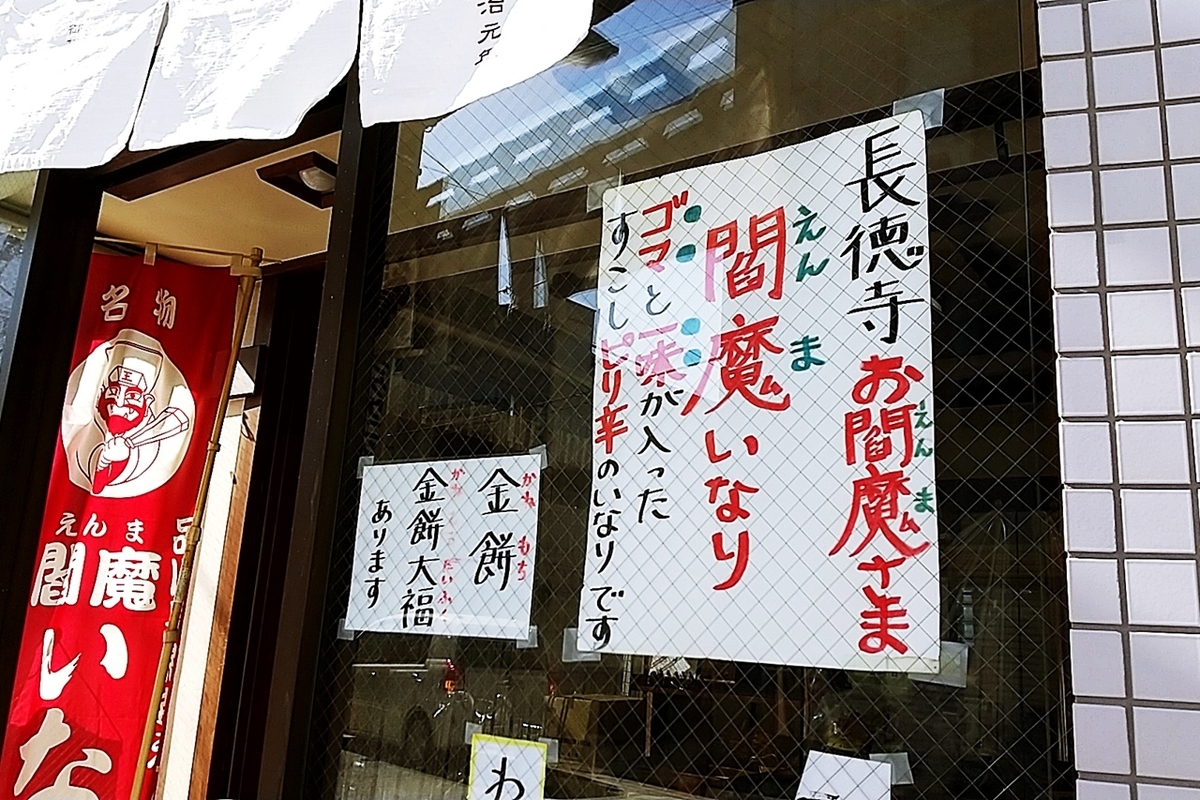 治元年
長徳寺お閻魔さま
えんま
えんま
閻魔いなり
ゴマと一味が入った
すこしピリ辛のいなりです
かねもち
金餅
かねもちだいふく
金餅大福
あります
わ
名物
王
えんま
閻魔いな